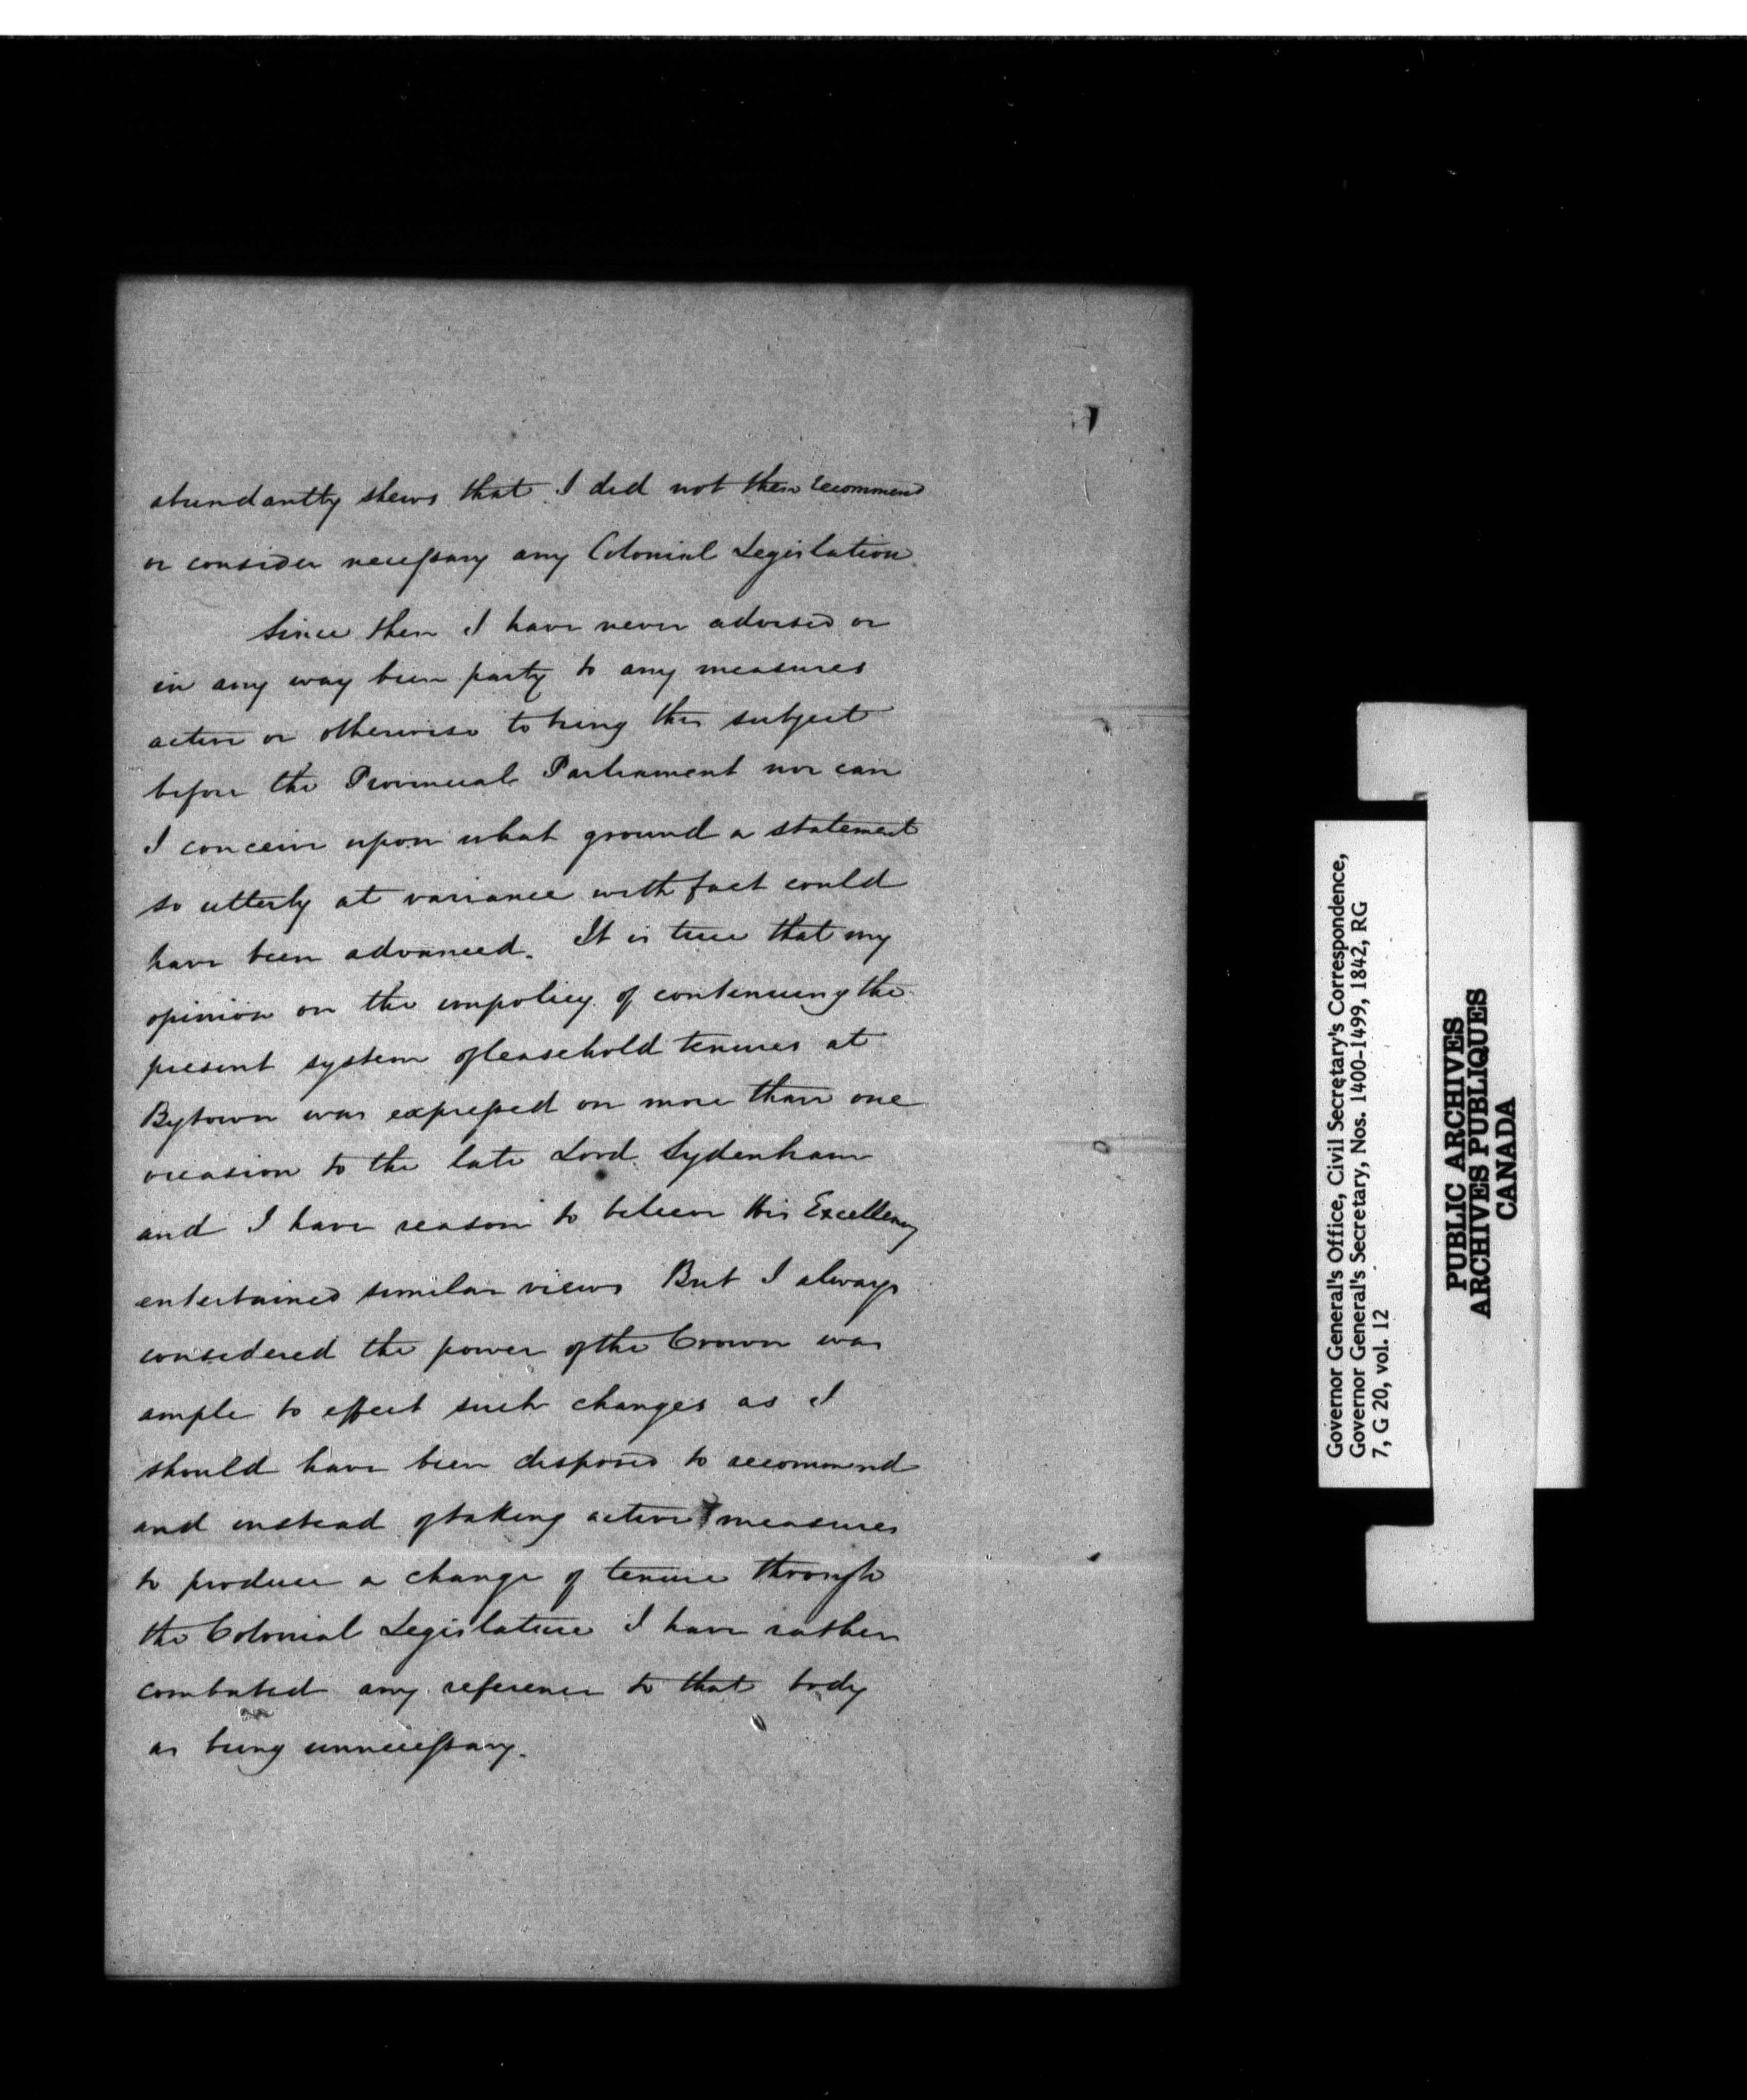 abundantly shews that I did not then recommend
or consider necessary any Colonial Legislation.
Since then I have never advised or
in any way been party to any measures
active or otherwise to bring this subject
before the Provincial Parliament nor can
I conceive upon what ground a statement
so utterly at variance with fact could
have been advanced. It is true that my
opinion on the impolicy of continuing the
present system of leasehold tenures at
Bytown was expressed on more than one
occasion to the late Lord Sydenham
and I have reason to believe His Excellency
entertained similar views But I always
considered the power of the Crown was
ample to effect such changes as I
should have been disposed to recommend
and instead of taking active measures
to produce a change of tenure through
the Colonial Legislature I have rather
combated any reference to that body
as being unnecessary.
Governor General's Office, Civil Secretary's Correspondence,
Governor General's Secretary, Nos. 1400-1499, 1842, RG
7, G 20, vol. 12
PUBLIC ARCHIVES
ARCHIVES PUBLIQUES
CANADA